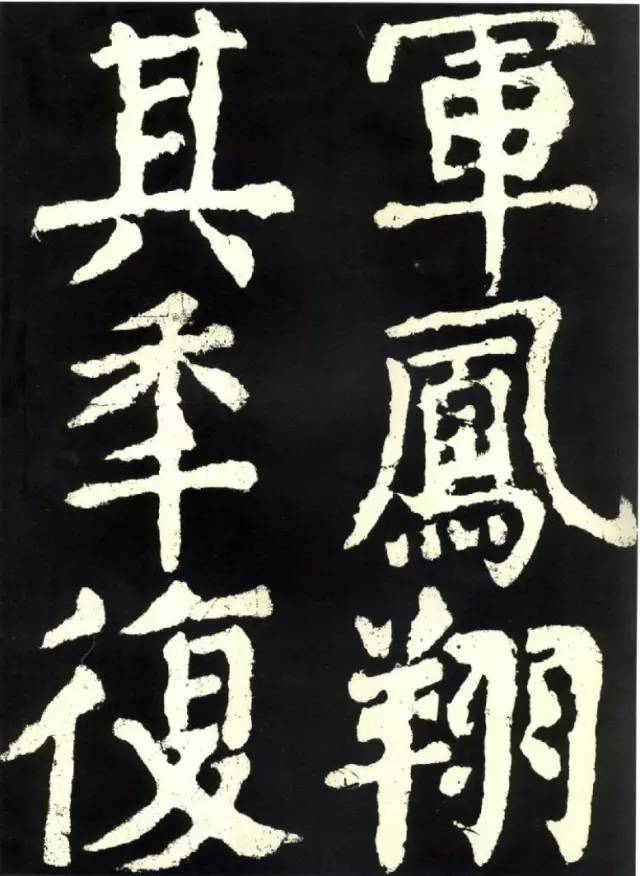 軍鳳翔
其年復